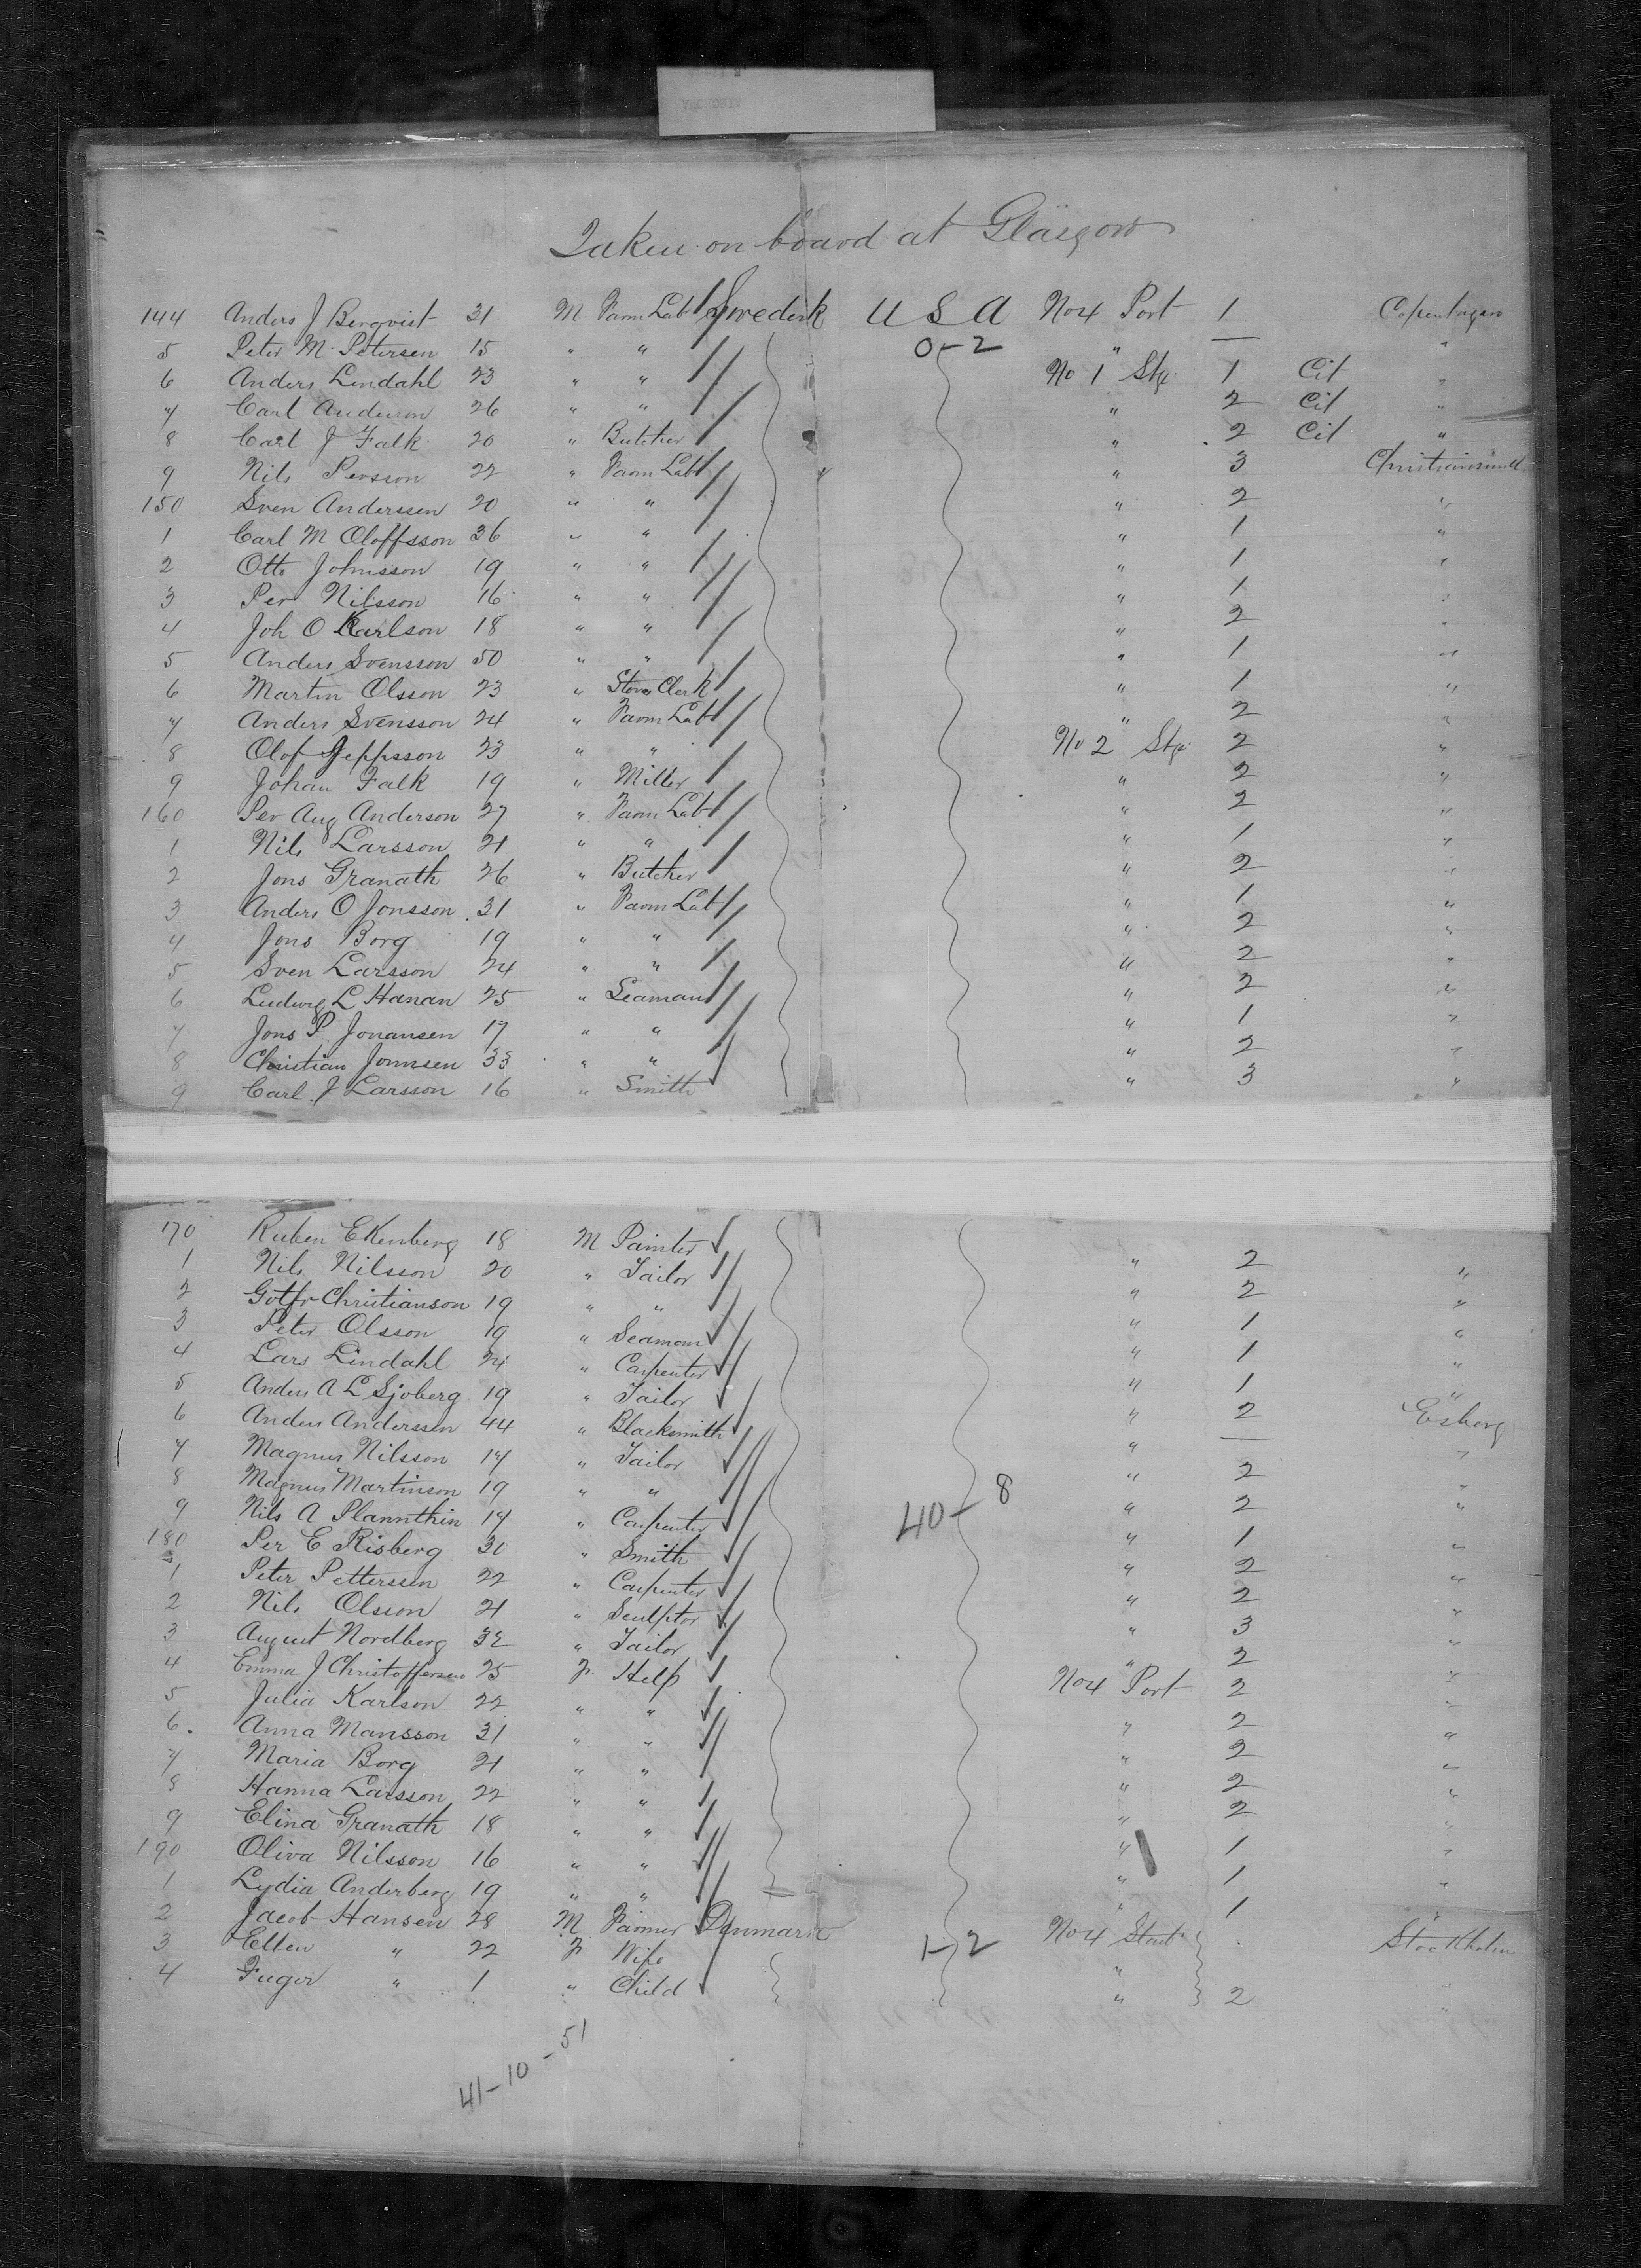 Taken on board at Glasgow
144 Anders J Berqvist 31 M Farm Lab Swedish U S A No 4 Port 1 Copenhagen
5 Peter M Petersen 15 " " 0-2 " — "
6 Anders Lindahl 23 " " No 1 Stg 1 Cit "
7 Carl Anderson 26 " " " 2 Cit "
8 Carl J Falk 20 " Butcher " 2 Cit "
9 Nils Persson 22 " Farm Lab " 3 Christiansund
150 Sven Anderssen 20 " " " 2 "
1 Carl M Oloffsson 36 " " " 1 "
2 Otto Johnsson 19 " " " 1 "
3 Per Nilsson 16 " " " 1 "
4 Joh O Karlson 18 " " " 2 "
5 Anders Svensson 50 " " " 1 "
6 Martin Olsson 23 " Store Clerk " 1 "
7 Anders Svensson 24 " Farm Lab " 2 "
8 Olof Jeppsson 23 " " No 2 Stg 2 "
9 Johan Falk 19 " Miller " 2 "
160 Per Aug Anderson 27 " Farm Lab " 2 "
1 Nils Larsson 21 " " " 1 "
2 Jons Granath 26 " Butcher " 2 "
3 Anders O Jonsson 31 " Farm Lab " 1 "
4 Jons Borg 19 " " " 2 "
5 Sven Larsson 24 " " " 2 "
6 Ludwig L Hanan 25 " Seaman " 2 "
7 Jons P. Jonansen 17 " " " 1 "
8 Christian Jonnsen 33 " " " 2 "
9 Carl J Larsson 16 " Smith " 3 "
170 Ruben Ekenberg 18 M Painter " 2 "
1 Nils Nilsson 20 " Tailor " 2 "
2 Gotfr Christianson 19 " " " 1 "
3 Peter Olsson 19 " Seaman " 1 "
4 Lars Lindahl 24 " Carpenter " 1 "
5 Anders A L Sjoberg 19 " Tailor " 2 Esberg
6 Anders Anderssen 44 " Blacksmith " — "
7 Magnus Nilsson 17 " Tailor " 2 "
8 Magnus Martinson 19 " " 40-8 " 2 "
9 Nils A Plannthin 17 " Carpenter " 1 "
180 Per E Risberg 30 " Smith " 2 "
1 Peter Petterssen 22 " Carpenter " 2 "
2 Nils Olsson 21 " Sculptor " 3 "
3 August Nordberg 32 " Tailor " 2 "
4 Emma J Christoffersen 25 F Help No 4 Port 2 "
5 Julia Karlson 22 " " " 2 "
6. Anna Mansson 31 " " " 2 "
7 Maria Borg 21 " " " 2 "
8 Hanna Larsson 22 " " " 2 "
9 Elina Granath 18 " " " 1 "
190 Oliva Nilsson 16 " " " 1 "
1 Lydia Anderberg 19 " " " 1 "
2 Jacob Hansen 28 M Farmer Denmark 1-2 No 4 Stockholm
3 Ellen " 22 F Wife " "
4 " 1 " Child " 2 "
41-10-51